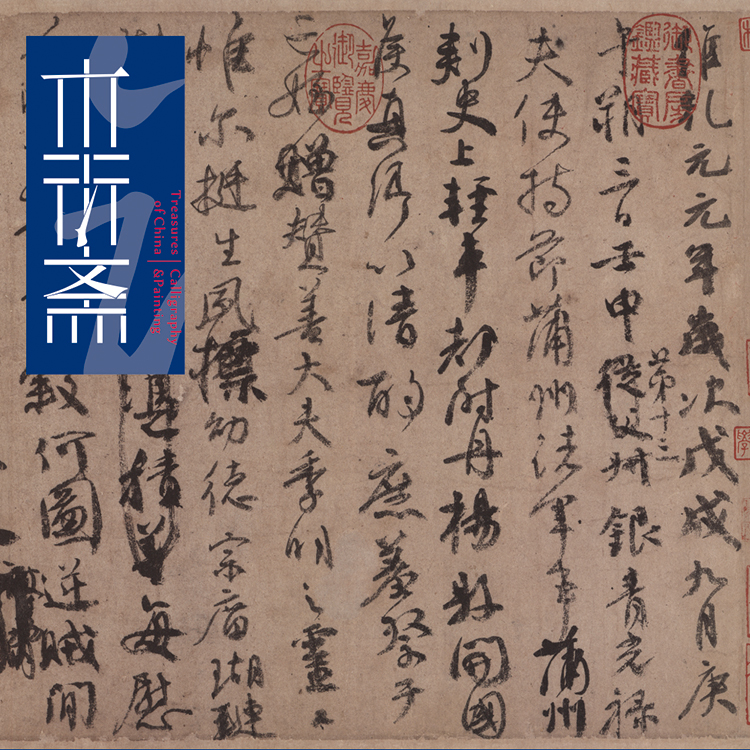 維乾元元年歲次戊戌九月庚
午朔三日壬申第十三從父叔銀青光祿
夫使持節蒲州諸軍事蒲州
刺史上輕車都尉丹楊縣開國
侯真卿以清酌庶羞祭于
亡姪贈贊善大夫季明之靈曰
惟爾挺生夙標幼德宗廟瑚璉
積善每慰
穀何圖逆賊間
御書房鑑藏寶
嘉慶御覽之寶
斋
Treasures | Calligraphy
of China | &Painting